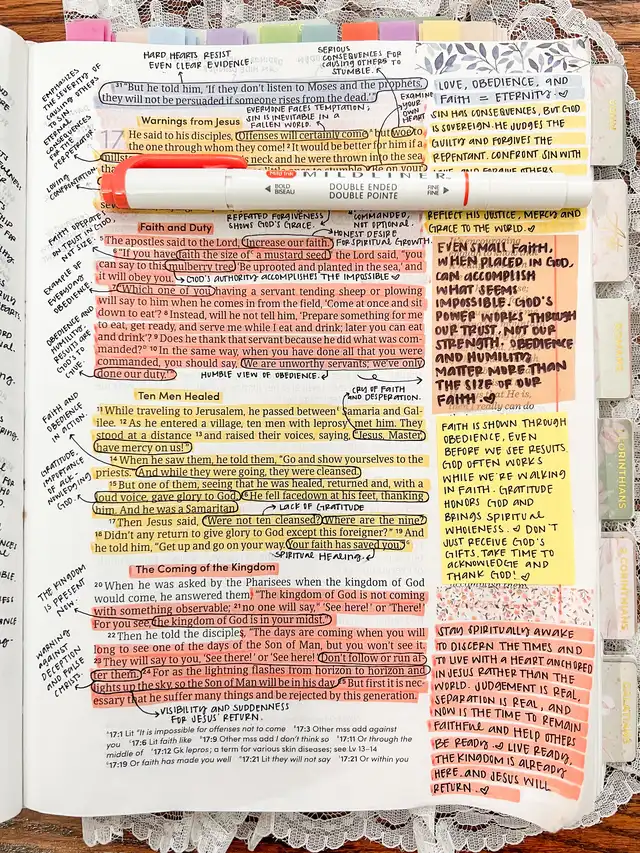 HARD HEARTS RESIST
EVEN CLEAR EVIDENCE
SERIOUS
CONSEQUENCES FOR
CAUSING OTHERS TO
STUMBLE.
EMPHASIZES
THE SEVERITY OF
CAUSING OTHERS
31 "But he told him, 'If they don't listen to Moses and the prophets,
they will not be persuaded if someone rises from the dead.'"
EXAMINE
YOUR OWN
HEART
EVERYONE FACES TEMPTATION;
SIN IS INEVITABLE IN A
FALLEN WORLD.
Warnings from Jesus
17 He said to his disciples, "Offenses will certainly come, but woe to
the one through whom they come! 2 It would be better for him if a
neck and he were thrown into the sea
LOVING
CONFRONTATION
MILDLINER
BOLD
BISEAU
DOUBLE ENDED
DOUBLE POINTE
FINE
FINE
REPEATED FORGIVENESS
SHOWS GOD'S GRACE.
"COMMANDED,
NOT OPTIONAL.
FAITH OPERATES
ON TRUST IN GOD,
NOT SIZE.
Faith and Duty
HONEST DESIRE
FOR SPIRITUAL GROWTH.
5 The apostles said to the Lord, "Increase our faith."
6 "If you have faith the size of a mustard seed," the Lord said, "you
can say to this mulberry tree, 'Be uprooted and planted in the sea,' and
it will obey you.
GOD'S AUTHORITY ACCOMPLISHES THE IMPOSSIBLE
EXAMPLE OF
EVERYDAY
OBEDIENCE
7 "Which one of you having a servant tending sheep or plowing
will say to him when he comes in from the field, 'Come at once and sit
down to eat'? 8 Instead, will he not tell him, 'Prepare something for me
to eat, get ready, and serve me while I eat and drink; later you can eat
and drink'? 9 Does he thank that servant because he did what was com-
manded? 10 In the same way, when you have done all that you were
commanded, you should say, 'We are unworthy servants; we've only
done our duty.'"
OBEDIENCE AND
HUMILITY,
RESULTS ARE
GOD'S TO
GIVE.
HUMBLE VIEW OF OBEDIENCE.
CRY OF FAITH
AND DESPERATION.
Ten Men Healed
FAITH AND
OBEDIENCE
IN ACTION.
11 While traveling to Jerusalem, he passed between Samaria and Gal-
ilee. 12 As he entered a village, ten men with leprosy met him. They
stood at a distance 13 and raised their voices, saying, "Jesus, Master,
have mercy on us!"
14 When he saw them, he told them, "Go and show yourselves to the
priests." And while they were going, they were cleansed.
GRATITUDE,
IMPORTANCE
OF ACK-
NOWLEDGING
GOD.
15 But one of them, seeing that he was healed, returned and, with a
loud voice, gave glory to God. 16 He fell facedown at his feet, thanking
him. And he was a Samaritan.
LACK OF GRATITUDE
17 Then Jesus said, "Were not ten cleansed? Where are the nine?
18 Didn't any return to give glory to God except this foreigner?" 19 And
he told him, "Get up and go on your way. Your faith has saved you."
SPIRITUAL HEALING.
The Coming of the Kingdom
THE KINGDOM
IS PRESENT
NOW.
20 When he was asked by the Pharisees when the kingdom of God
would come, he answered them, "The kingdom of God is not coming
with something observable; 21 no one will say, 'See here!' or 'There!'
For you see, the kingdom of God is in your midst."
22 Then he told the disciples, "The days are coming when you will
long to see one of the days of the Son of Man, but you won't see it.
23 They will say to you, 'See there!' or 'See here!' Don't follow or run af-
ter them. 24 For as the lightning flashes from horizon to horizon and
lights up the sky, so the Son of Man will be in his day. 25 But first it is nec-
essary that he suffer many things and be rejected by this generation.
WARNING
AGAINST
DECEPTION
AND FALSE
CHRISTS.
VISIBILITY AND SUDDENNESS
FOR JESUS' RETURN.
17:1 Lit "It is impossible for offenses not to come 17:3 Other mss add against
you 17:6 Lit faith like 17:9 Other mss add I don't think so 17:11 Or through the
middle of 17:12 Gk lepros; a term for various skin diseases; see Lv 13–14
17:19 Or faith has made you well 17:21 Lit they will not say 17:21 Or within you
LOVE, OBEDIENCE, AND
FAITH = ETERNITY.
SIN HAS CONSEQUENCES, BUT GOD
IS SOVEREIGN. HE JUDGES THE
GUILTY AND FORGIVES THE
REPENTANT. CONFRONT SIN WITH
REFLECT HIS JUSTICE, MERCY AND
GRACE TO THE WORLD.
EVEN SMALL FAITH,
WHEN PLACED, IN GOD,
CAN ACCOMPLISH
WHAT SEEMS
IMPOSSIBLE. GOD'S
POWER WORKS THROUGH
OUR TRUST, NOT OUR
STRENGTH. OBEDIENCE
AND HUMILITY
MATTER MORE THAN
THE SIZE OF OUR
FAITH.
FAITH IS SHOWN THROUGH
OBEDIENCE, EVEN
BEFORE WE SEE RESULTS.
GOD OFTEN WORKS
WHILE WE'RE WALKING
IN FAITH. GRATITUDE
HONORS GOD AND
BRINGS SPIRITUAL
WHOLENESS. DON'T
JUST RECEIVE GOD'S
GIFTS, TAKE TIME TO
ACKNOWLEDGE AND
THANK GOD!
STAY SPIRITUALLY AWAKE
TO DISCERN THE TIMES AND
TO LIVE WITH A HEART ANCHORED
IN JESUS RATHER THAN THE
WORLD. JUDGEMENT IS REAL,
SEPARATION IS REAL, AND
NOW IS THE TIME TO REMAIN
FAITHFUL AND HELP OTHERS
BE READY. LIVE READY,
THE KINGDOM IS ALREADY
HERE AND JESUS WILL
RETURN.
CORINTHIANS